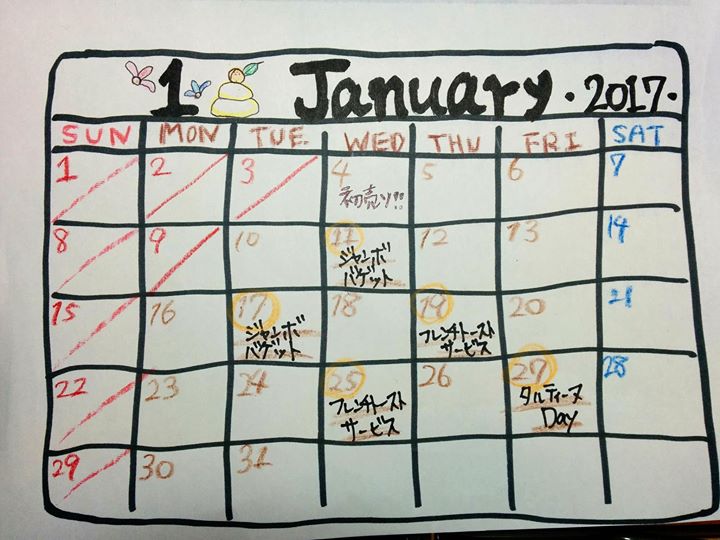 1 January · 2017 ·
SUN MON TUE WED THU FRI SAT
1 2 3 4 5 6 7
初売り!!
8 9 10 11 12 13 14
ジャンボ
バゲット
15 16 17 18 19 20 21
ジャンボ
バゲット
フレンチトースト
サービス
22 23 24 25 26 27 28
フレンチトースト
サービス
タルティーヌ
Day
29 30 31